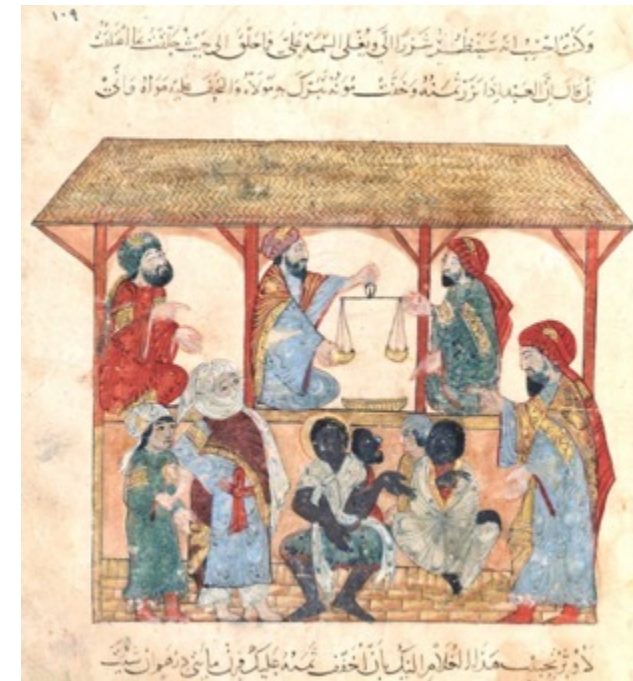 ١٠٩
وكنت احسب انه سينظر شزرا الي ويغلي السيمة علي فما حلق الى حيث حلقت
بل قال ان العبد اذا نزر ثمنه وخفت مونه تبرك به مولاه والتحف عليه هواه واني
لاوثر تحبيب هذا الغلام اليك بان اخفف ثمنه عليك فزن مائتي درهم ان شئت